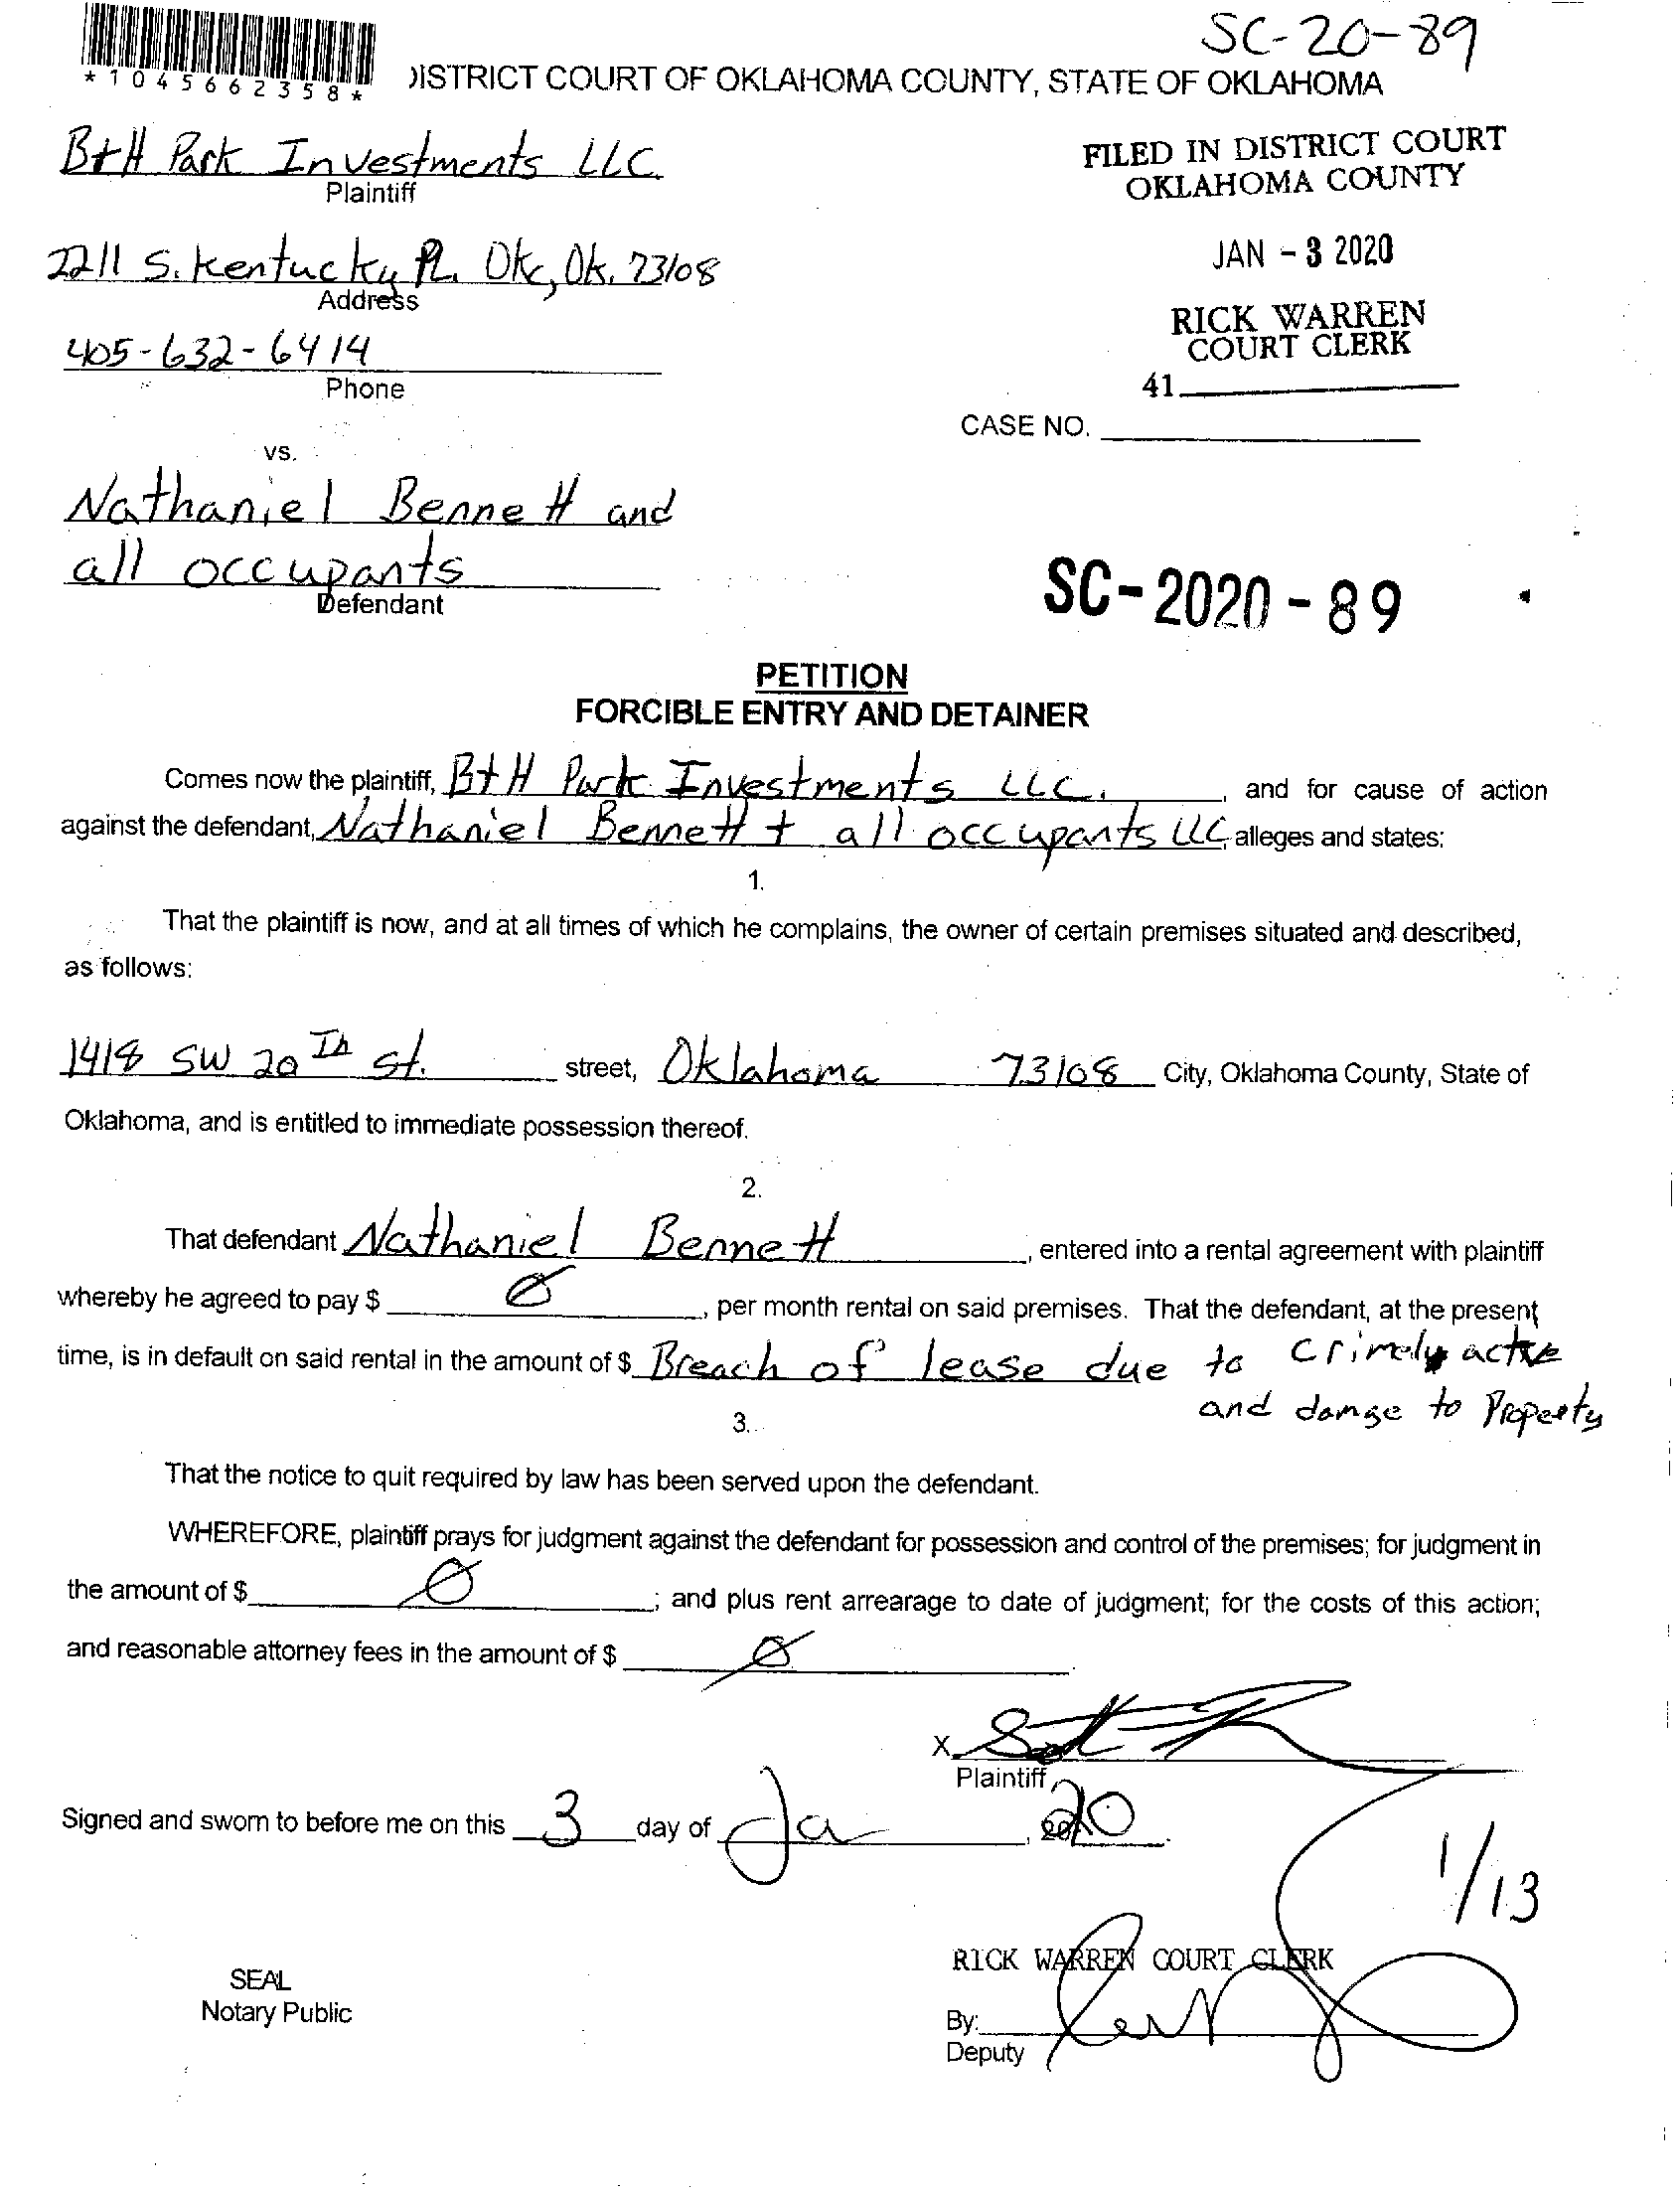 SC-20-89
*1045662358*
DISTRICT COURT OF OKLAHOMA COUNTY, STATE OF OKLAHOMA
B+H Park Investments LLC.
Plaintiff
FILED IN DISTRICT COURT
OKLAHOMA COUNTY
2211 S. Kentucky Pl. Okc, Ok. 73108
Address
JAN - 3 2020
405-632-6414
Phone
RICK WARREN
COURT CLERK
41
CASE NO.
vs.
Nathaniel Bennett and
all occupants
Defendant
SC-2020-89
PETITION
FORCIBLE ENTRY AND DETAINER
Comes now the plaintiff, B+H Park Investments LLC. , and for cause of action
against the defendant, Nathaniel Bennett + all occupants LLC, alleges and states:
1.
That the plaintiff is now, and at all times of which he complains, the owner of certain premises situated and described,
as follows:
1418 SW 20th St. street, Oklahoma 73108 City, Oklahoma County, State of
Oklahoma, and is entitled to immediate possession thereof.
2.
That defendant Nathaniel Bennett , entered into a rental agreement with plaintiff
whereby he agreed to pay $ Ø , per month rental on said premises. That the defendant, at the present
time, is in default on said rental in the amount of $ Breach of lease due to crimely active
and damge to Property
3.
That the notice to quit required by law has been served upon the defendant.
WHEREFORE, plaintiff prays for judgment against the defendant for possession and control of the premises; for judgment in
the amount of $ Ø ; and plus rent arrearage to date of judgment; for the costs of this action;
and reasonable attorney fees in the amount of $ Ø
X
Plaintiff
Signed and sworn to before me on this 3 day of Ja , 2020
1/13
SEAL
Notary Public
RICK WARREN COURT CLERK
By:
Deputy